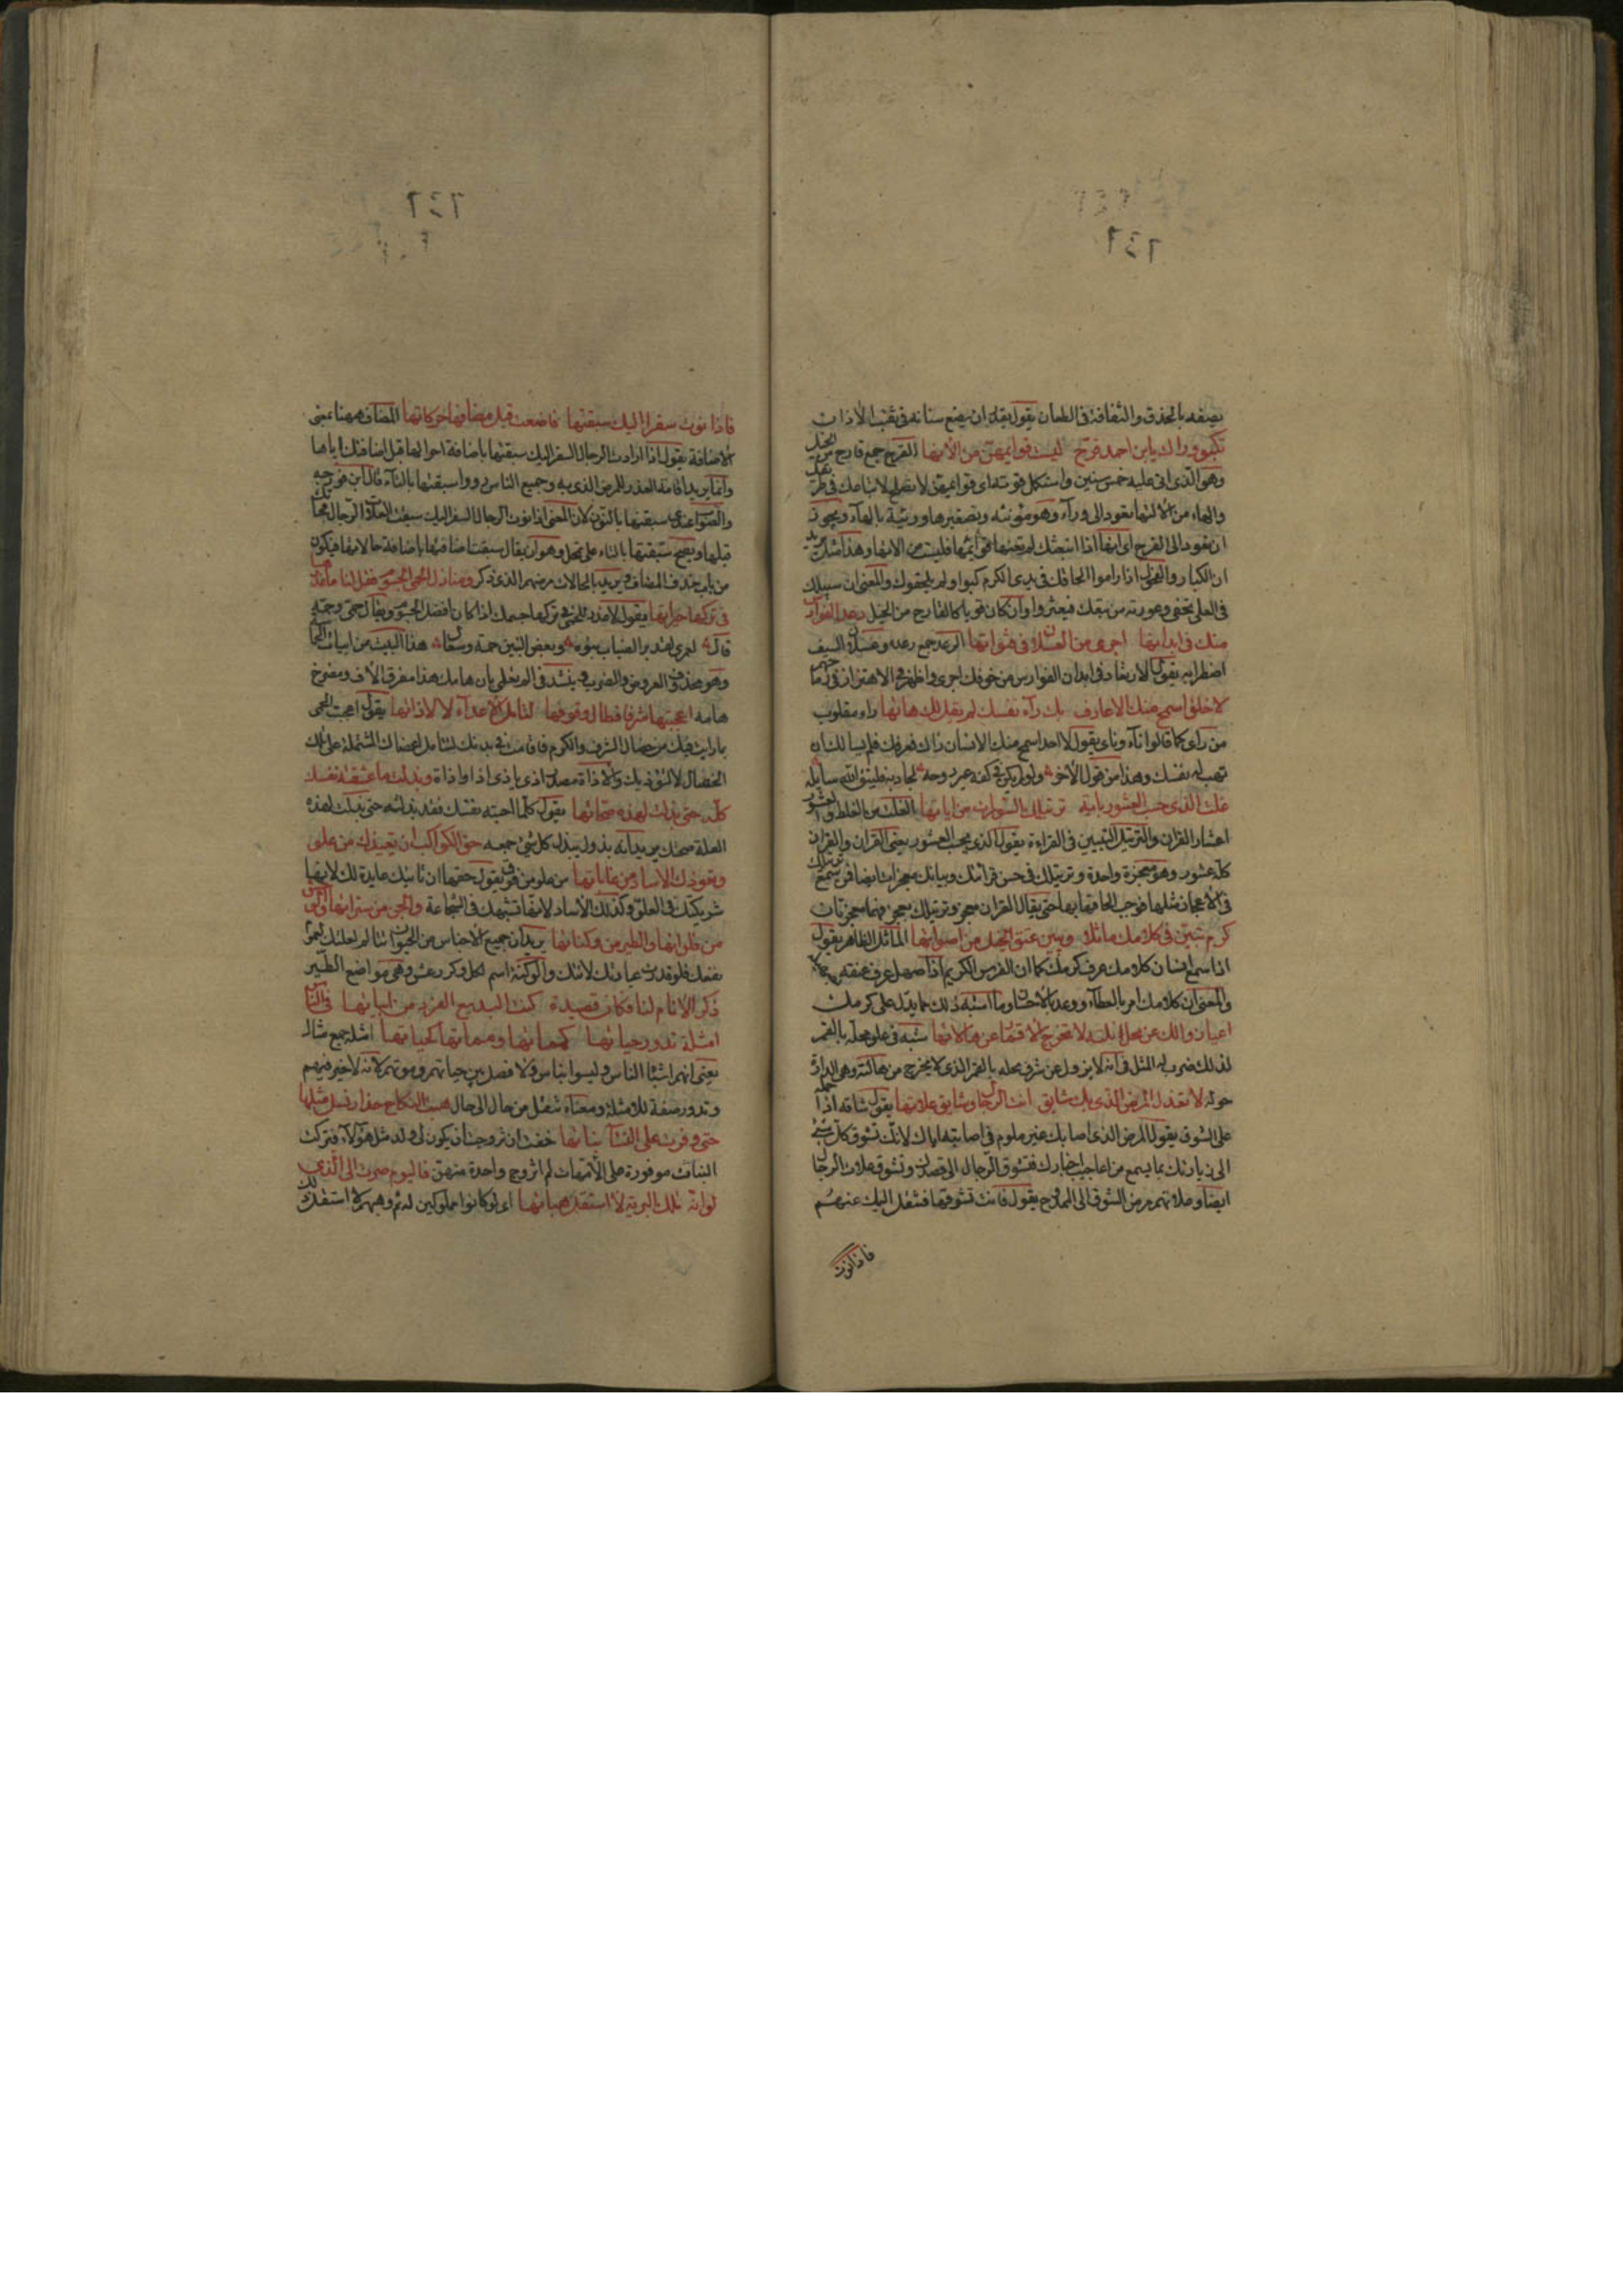 يصفه بالحذق والثقافة في الطعان يقول يقدر ان يضع سنانه في ثقب الاذان
تكبو وراك يابن احمد قرح ليست قوايمهن من الاتها القرح جمع قارح من الخيل
وهو الذي اتى عليه خمس سنين واستكمل قوته اي قوايمهن لا تصلح لاتباعك في طرقك
والهاء من الاتها تعود الى وراء وهو مؤنثة وتصغيرها وريئة بالهاء ويجوز
ان تعود الى القرح اي انها اذا اتبعتك لم تعنها قوايمها فليست من الاتها وهذا مثل يريد
ان الكبار والفحول اذا راموا لحاقك في مدى الكرم كبوا ولم يلحقوك والمعنى ان سبيلك
في العلى تخفى وعورته من تبعك فيعثر وان كان قويا كالقارح من الخيل رعد الفوارس
منك في ابدانها اجرى من العسلان في قنواتها الرعد جمع رعدة وعسلان السيف
اضطرابه يقول الارتعاد في ابدان الفوارس من خوفك اجرى واظهر من الاهتزاز في رماحهم
لا خلق اسمح منك الا عارف بك راء نفسك لم يقل لك هاتها راء مقلوب
من راى كما قالوا ناء ونأى يقول لا احد اسمح منك الا انسان راك فعرفك فلم يسالك ان
تهب له نفسك وهذا من قول الاخر ولو لم يكن في كفه غير روحه لجاد بها فليتق الله سايله
غلت الذي حسب العشور باية ترتيلك السورات من اياتها الغلت من الغلط والعشور
اعشار القران والترتيل التبيين في القراءة يقول الذي يحسب العشور يعني القران والقران
كله عشور وهو معجزة واحدة وترتيلك في حسن قرائتك وبيانك معجزات ايضا فمن سمع ترتيلك
في الاعجاز مثلها فوجب الحاقها بها حتى يقال القران معجز وترتيلك معجز فهما معجزتان
كرم تبين في كلامك ماثلا ويبين عتق الخيل من اصواتها الماثل الظاهر يقول
اذا سمع انسان كلامك عرف كرمك كما ان الفرس الكريم اذا صهل عرف عتقه بصهيله
والمعنى ان كلامك امر بالعطاء ووعد بالاحسان وما اشبه ذلك مما يدل على كرمك
اعيا زوالك عن محل نلته لا تخرج الاقمار عن هالاتها شبه في علو محله بالقمر
لذلك ضرب له المثل في انه لا يزول عن شرف محله بالقمر الذي لا يخرج من هالته وهي الدارة
حوله لا نعذل المرض الذي بك شايق انت الرجال وشايق علاتها يقول شاقه اذا حمله
على الشوق يقول المرض الذي اصابك غير ملوم في اصابته اياك لانك تشوق كل شيء
الى زيارتك بما يسمع من اعاجيب اخبارك فتشوق الرجال الى قصدك وتشوق علات الرجال
ايضا وعلاتهم مرض الشوق الى الممدوح يقول فانت تشوقها فتنقل اليك عنهم
فاذا نوت
فاذا نوت سفرا اليك سبقنها فاضعت قبل مضافها حركاتها المضاف ههنا بمعنى
الاضافة يقول اذا ارادت الرجال السفر اليك سبقتها باضافة احوالها قبل اضافتك اياها
وانما يريد اقامة العذر للمرض الذي به وجميع الناس رووا سبقتها بالتاء قال ابن فورجه
والصواب عندي سبقنها بالنون لان المعنى اذا نوت الرجال السفر اليك سبقت العلات الرجال
قبلها ويصح سبقتها بالتاء على تمحل وهو ان يقال سبقت اضافتها باضافة حالاتها فيكون
من باب حذف المضاف يريد بالحالات مرضهم الذي ذكر ومنازل الحمى الجسوم فقل لنا ما عذرها
في تركها خيراتها يقول لا عذر للحمى في تركها جسمك اذا كان افضل الجسوم ويقال حمى وحمة
قال لعمري لقد بر الضباب بنوه وبعض البنين حمة وسعال هذا البيت من ابيات
وهو محذوف العروض والضرب
هامه اعجبتها شرفا فطال وقوفها لتأمل الاعضاء لا لاذاتها يقول اعجبت الحمى
بما رات فيك من خصال الشرف والكرم فاقامت في بدنك لتتامل اعضاك المشتملة على تلك
الخصال لا لتؤذيك والاذاة مصدر اذي ياذى اذا واذاة وبذلت ما عشقته نفسك
كله حتى بذلت لهذه صحاتها يقول كلما احبته نفسك فقد بذلته حتى بذلت لهذه
العلة صحتك يريد انه بذول يبذل كل شيء جمعه حق الكواكب ان تعودك من علو
وتعودك الاساد من غاباتها من علو من فوق يقول حقها ان تاتيك عايدة لك لانها
شريكتك في العلو وكذلك الاساد لانها تشبهك في الشجاعة والجن من ستراتها والوحش
من فلواتها والطير من وكناتها يريد ان جميع الاجناس من الحيوان تتالم لعلتك لعموم
نفعك فلو قدرت عيادتك لاتتك والوكنة اسم لكل وكر وعش وهي مواضع الطير
ذكر الانام لنا فكان قصيدة كنت البديع الفرد من ابياتها في الناس
امثلة تدور حياتها كمماتها ومماتها كحياتها امثلة جمع مثال
يعني انهم اشباه الناس وليسوا بناس ولا فصل بين حياتهم وموتهم لانه لا خير فيهم
وتدور صفة للامثلة ومعناه تنقل من حال الى حال هبت النكاح حذار نسل مثلها
حتى وفرت على النساء بناتها خفت ان تزوجت ان يكون لي ولد مثل هؤلاء فتركت
البنات موفورة على الامهات لم اتزوج واحدة منهن فاليوم صرت الى الذي
لو انه ملك البرية لاستقل هباتها اي لو كانوا مملوكين له ثم وهبهم لاستقل ذلك